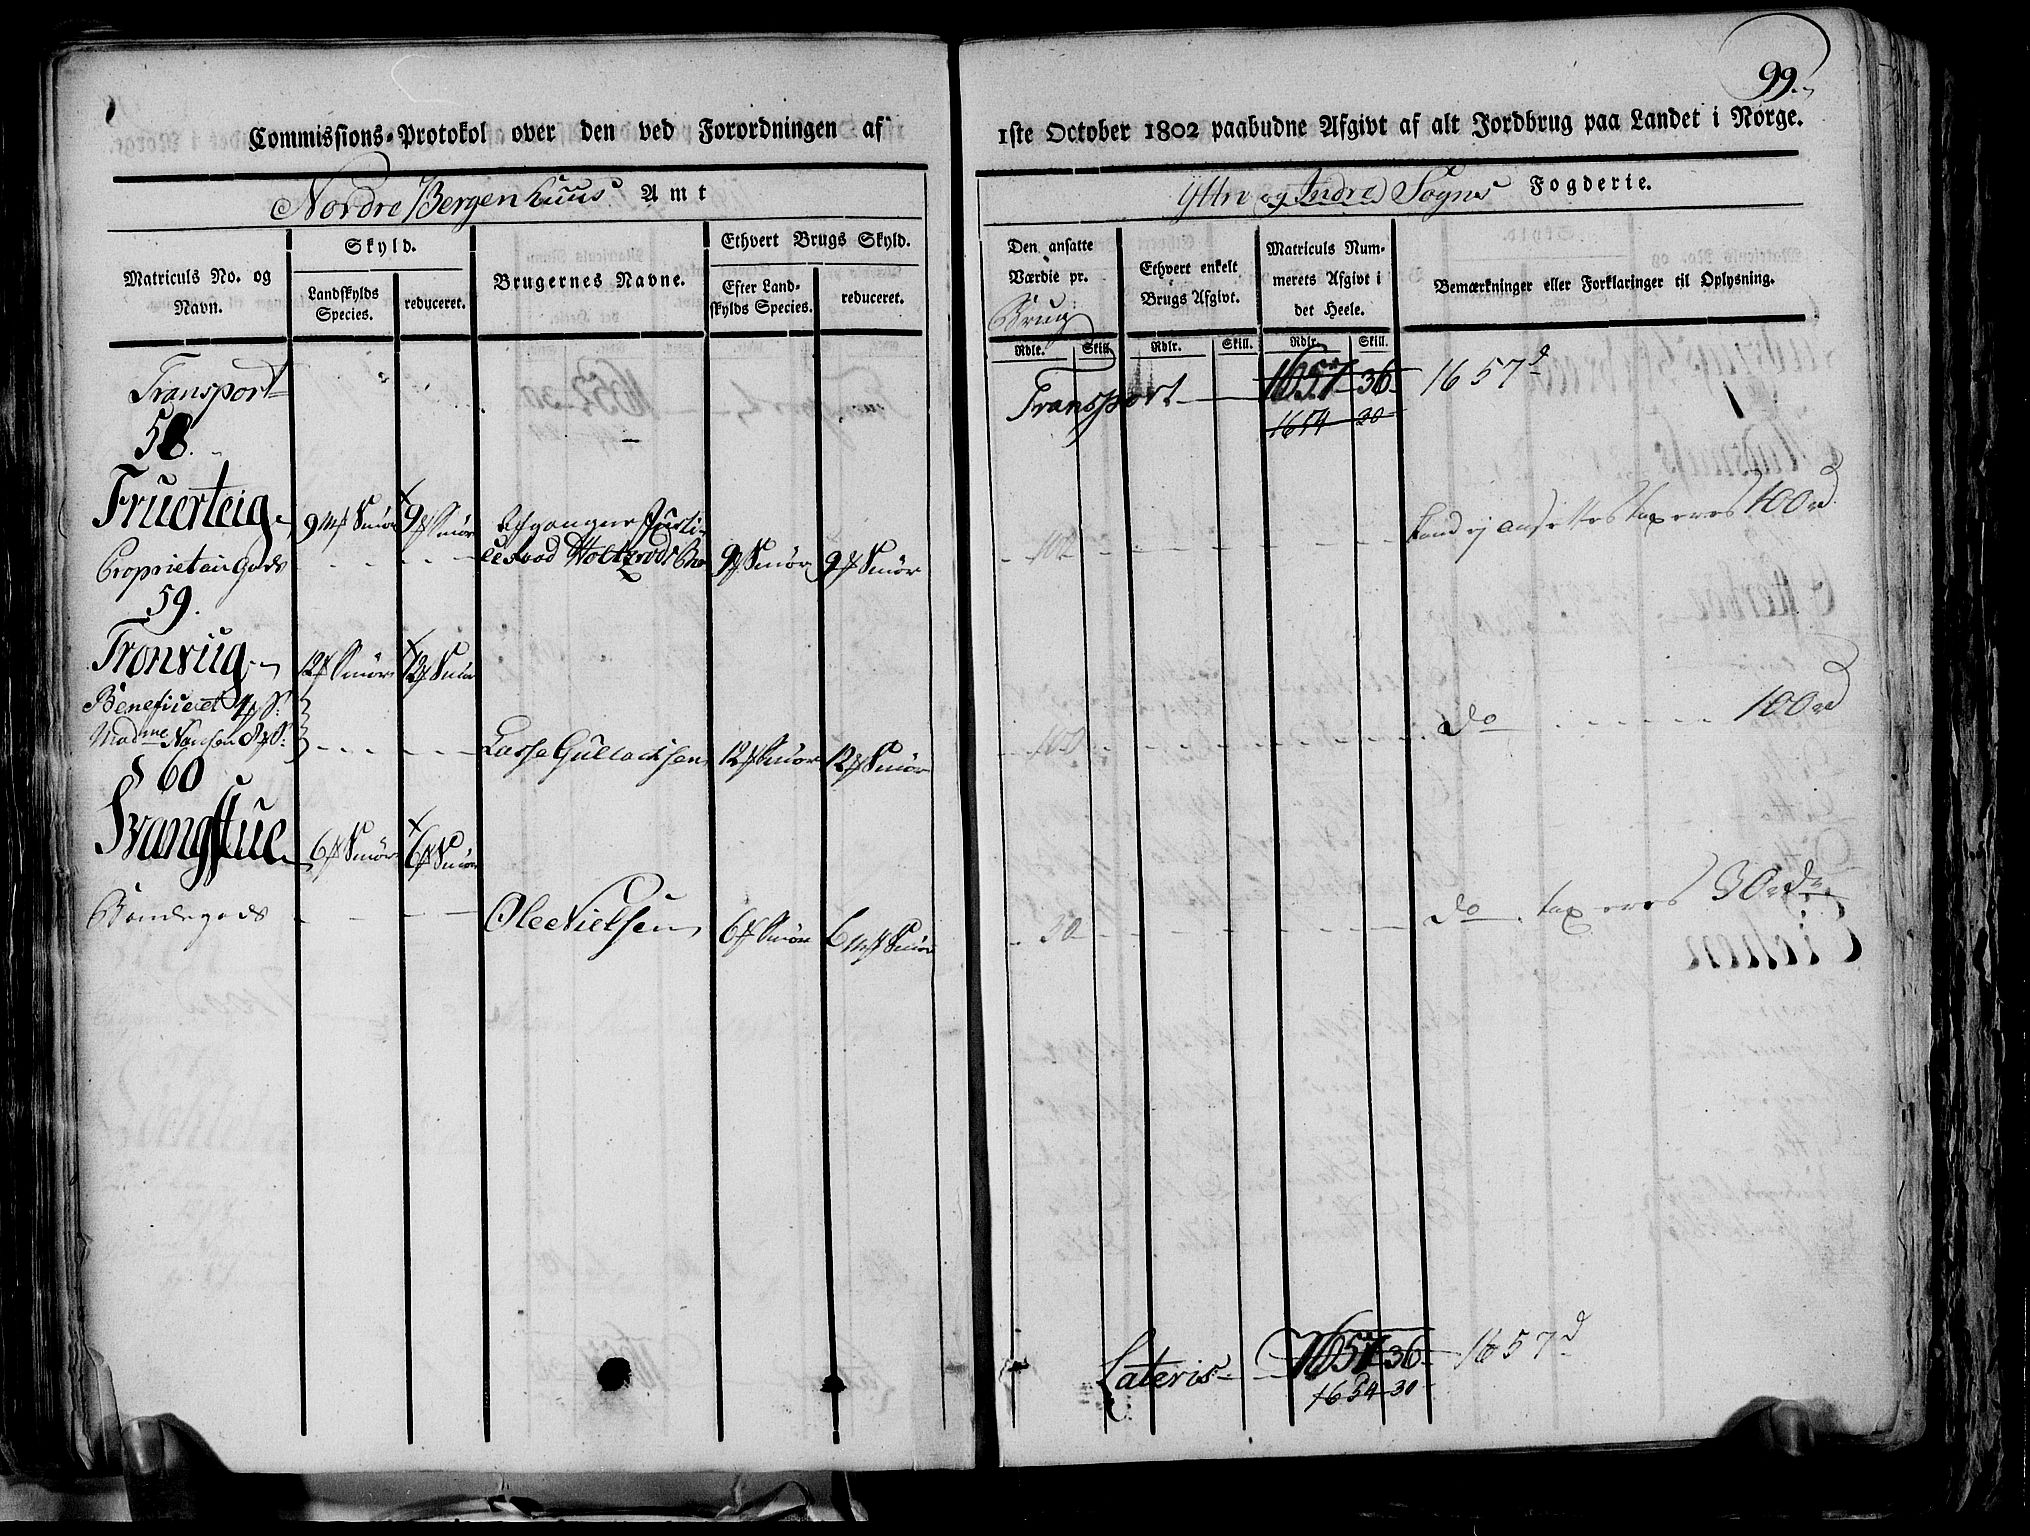 99.
Commissions-Protokol over den ved Forordningen af
1ste October 1802 paabudne Afgivt af alt Jordbrug paa Landet i Norge.
Nordre Bergenhuus Amt
Yttre og Indre Sogns Fogderie.
Matriculs No. og Navn.
Skyld.
Landskylds Species.
reduceret.
Brugernes Navne.
Ethvert Brugs Skyld.
Efter Landskylds Species.
reduceret.
Den ansatte Værdie pr.
Brug
Rdlr. Skill.
Ethvert enkelt Brugs Afgivt.
Rdlr. Skill.
Matriculs Nummerets Afgivt i det Heele.
Rdlr. Skill.
Bemærkninger eller Forklaringer til Oplysning.
Transport
Transport 1657 36 1657d
1654 30
58.
Fruerteig 9 Smør 9 Smør Afgangne Justi-
Proprietair Gods ceraad 9 Smør 9 Smør 100 taxeres 100 rd
59.
Tronvug 12 Smør 12 Smør
Beneficeret 4
Madme Nansen 8 Lasse Gullacksen 12 Smør 12 Smør 100 do 100 rd
60
Svangstue 6 Smør 6 Smør
Bondegods Ole Nielsen 6 Smør 6 Smør 30 do taxeres 30 rdr
Lateris 1657 36 1657d
1654 30